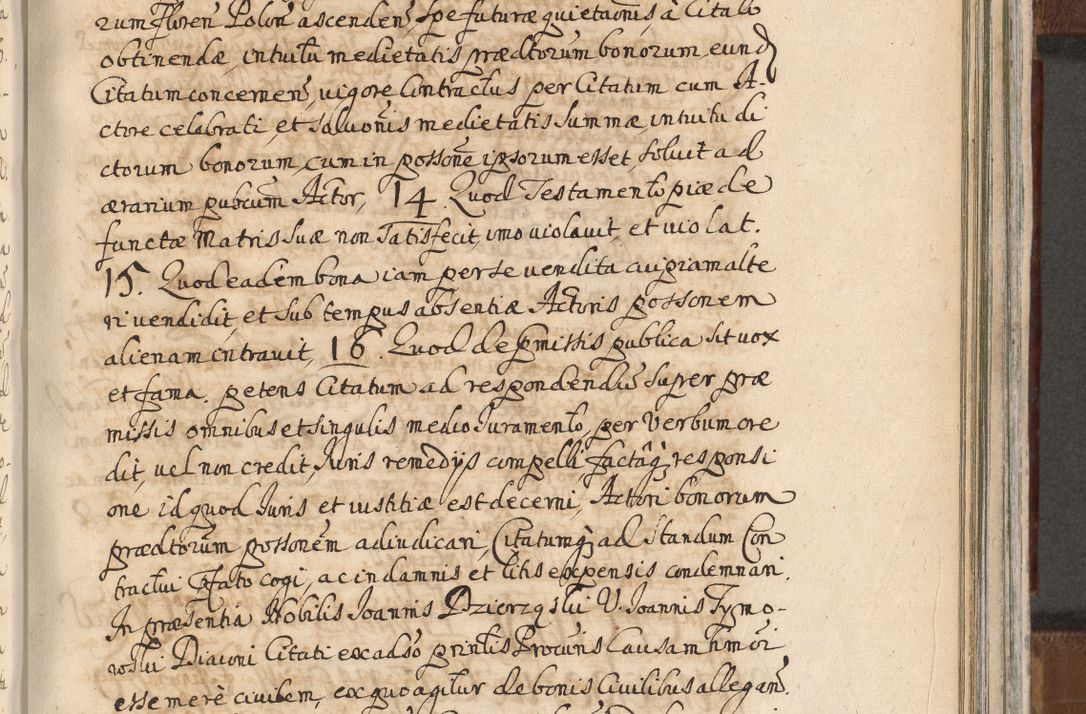 rum Floren Polon ascenden, spe futuræ quietaonis à Citato
obtinendæ, intuitu medietatis prædtorum bonorum, eund
Citatum concernen, vigore Contractus per Citatum cum A-
ctore celebrati, et Saluonis medietatis Summæ, intuitu di
ctorum bonorum, cum in possone ipsorum esset, soluit ad
ærarium pubcum Actor, 14. Quod Testamento piæ de
functæ Matris Suæ non satisfecit, imo violavit, et violat.
15. Quod eadem bona iam per se vendita cuipiam alte
ri vendidit, et sub tempus absentiæ Actoris possonem
alienam intravit, 16. Quod de pmissis publica sit vox
et fama. petens Citatum ad respondendu super præ
missis omnibus et singulis medio Juramento, per Verbum cre
dit, vel non credit, Juris remedijs compelli, factaq responsi
one id quod Juris et iustitiæ est decerni, Actori bonorum
prædtorum possonem adiudicari, Citatumq ad Standum Con
tractui pfato cogi, ac in damnis et litis expensis condemnari.
In præsentia Nobilis Joannis Dzierzgslui V. Joannis Tymo-
wslui Diaconi Citati ex adso printis Procuris Causam hmoi
esse merè civilem, ex quo agitur de bonis Civilibus allegan.